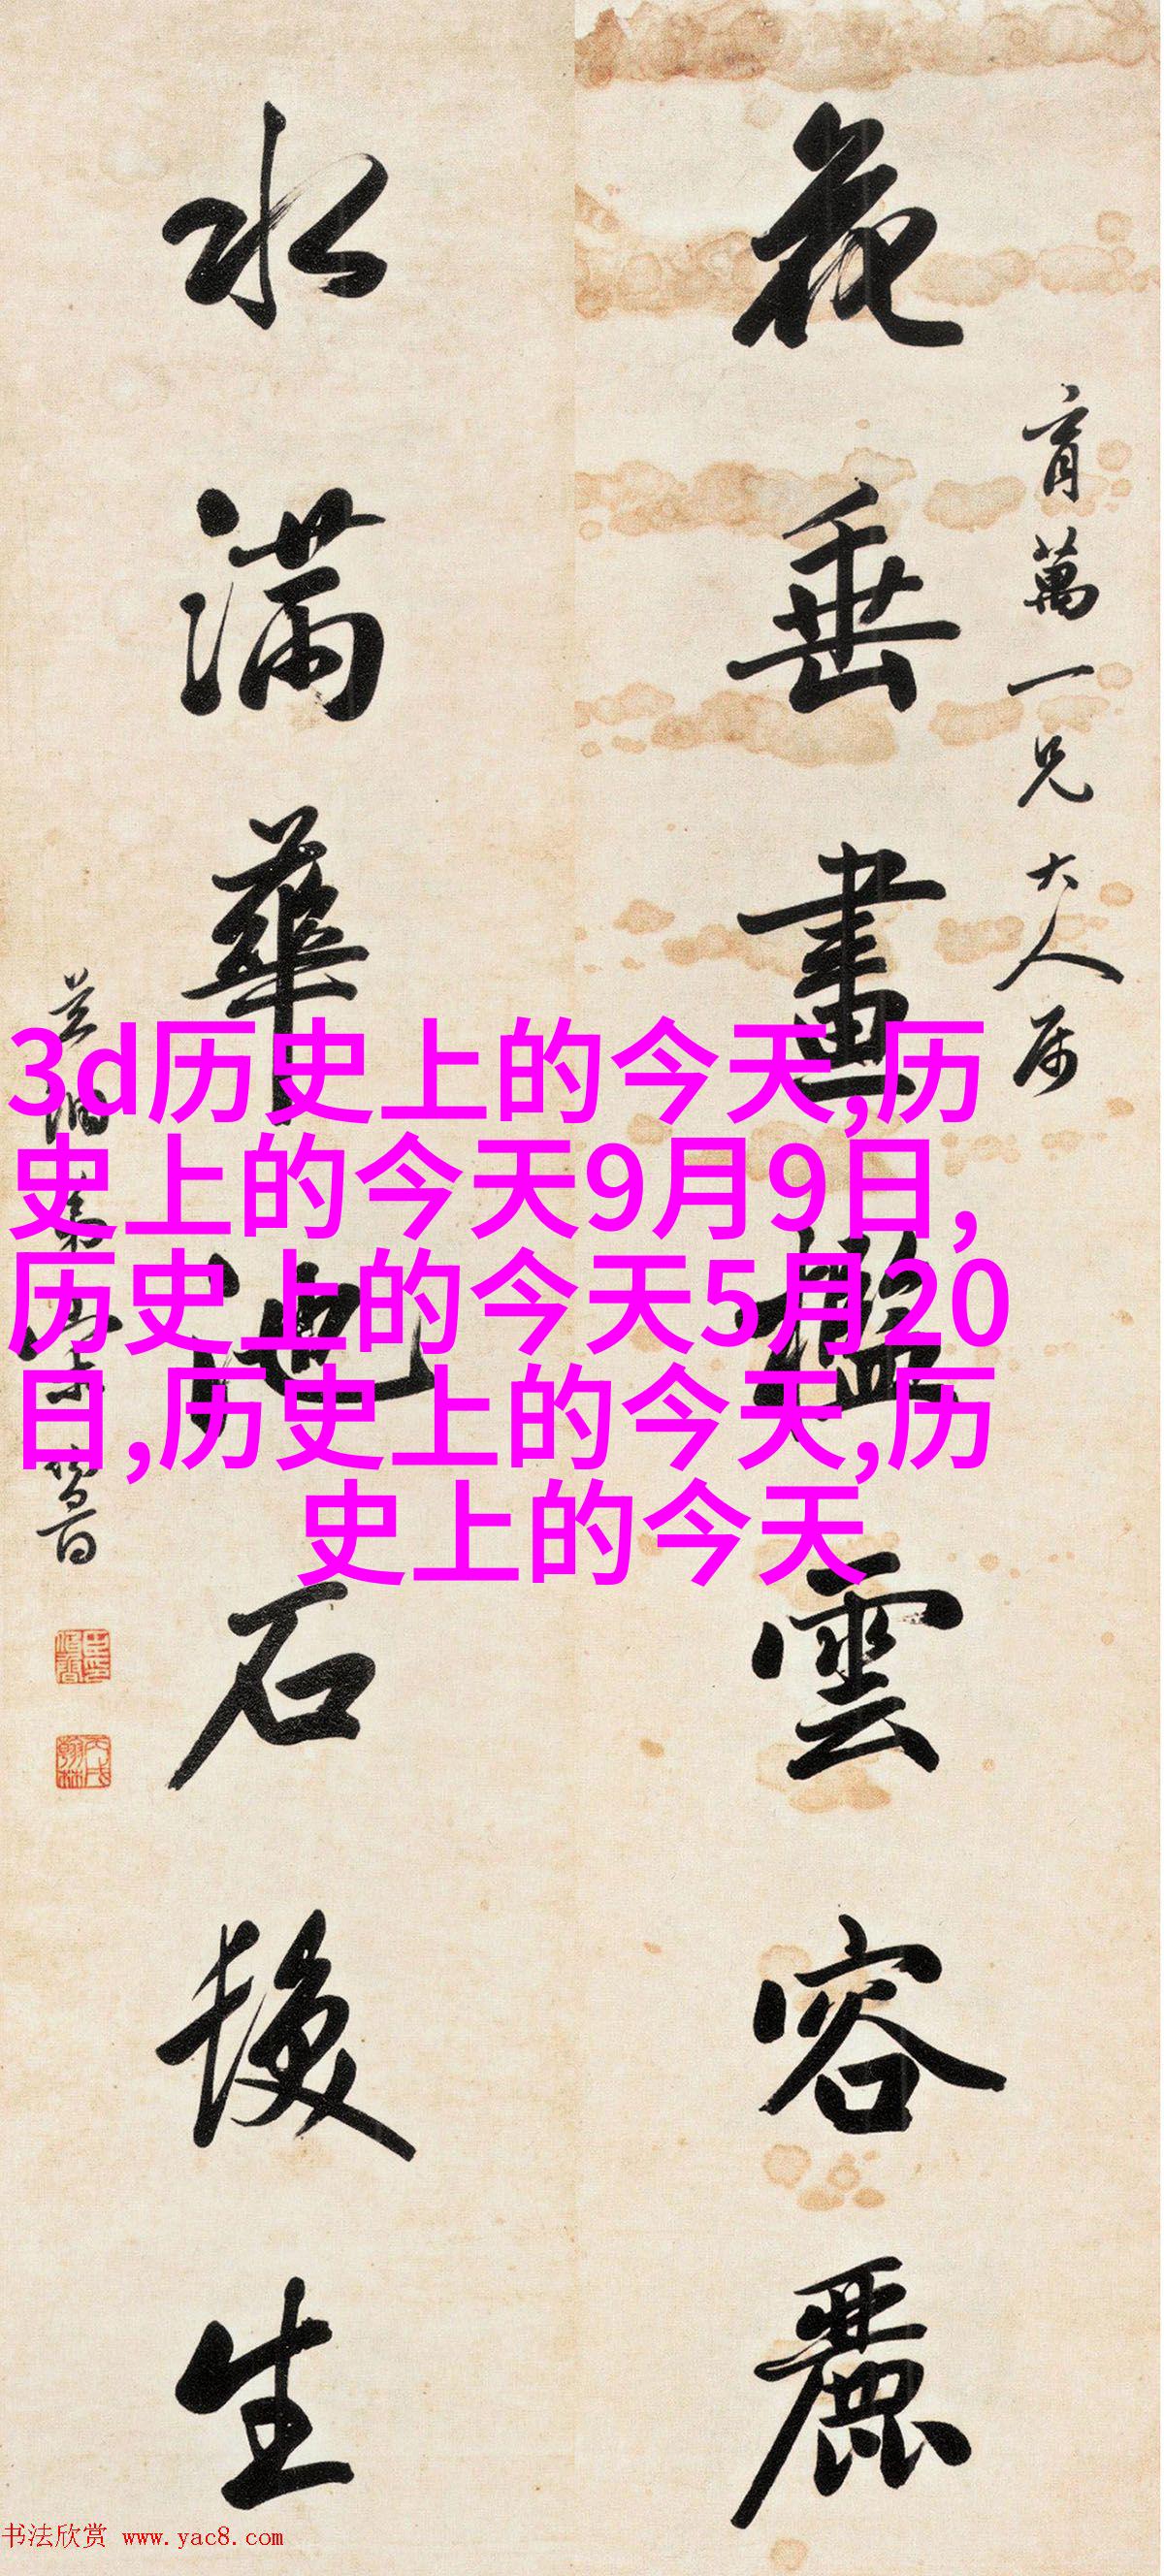 育萬一兄大人属
花垂畫檻雲容麗
水滿華池石髮生
3d历史上的今天,历
史上的今天9月9日,
历史上的今天5月20
日,历史上的今天,历
史上的今天
丙戌翰林
书法欣赏 www.yac8.com